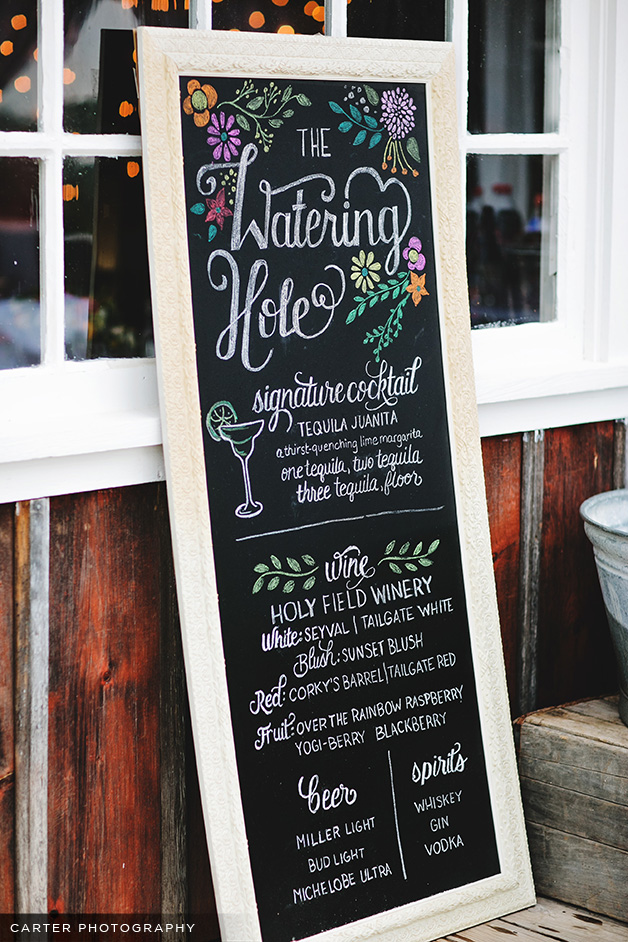 THE
Watering
Hole
signature cocktail
TEQUILA JUANITA
a thirst-quenching lime margarita
one tequila, two tequila
three tequila, floor
wine
HOLY FIELD WINERY
White: SEYVAL | TAILGATE WHITE
Blush: SUNSET BLUSH
Red: CORKY'S BARREL | TAILGATE RED
Fruit: OVER THE RAINBOW RASPBERRY
YOGI-BERRY BLACKBERRY
beer
MILLER LIGHT
BUD LIGHT
MICHELOBE ULTRA
spirits
WHISKEY
GIN
VODKA
CARTER PHOTOGRAPHY